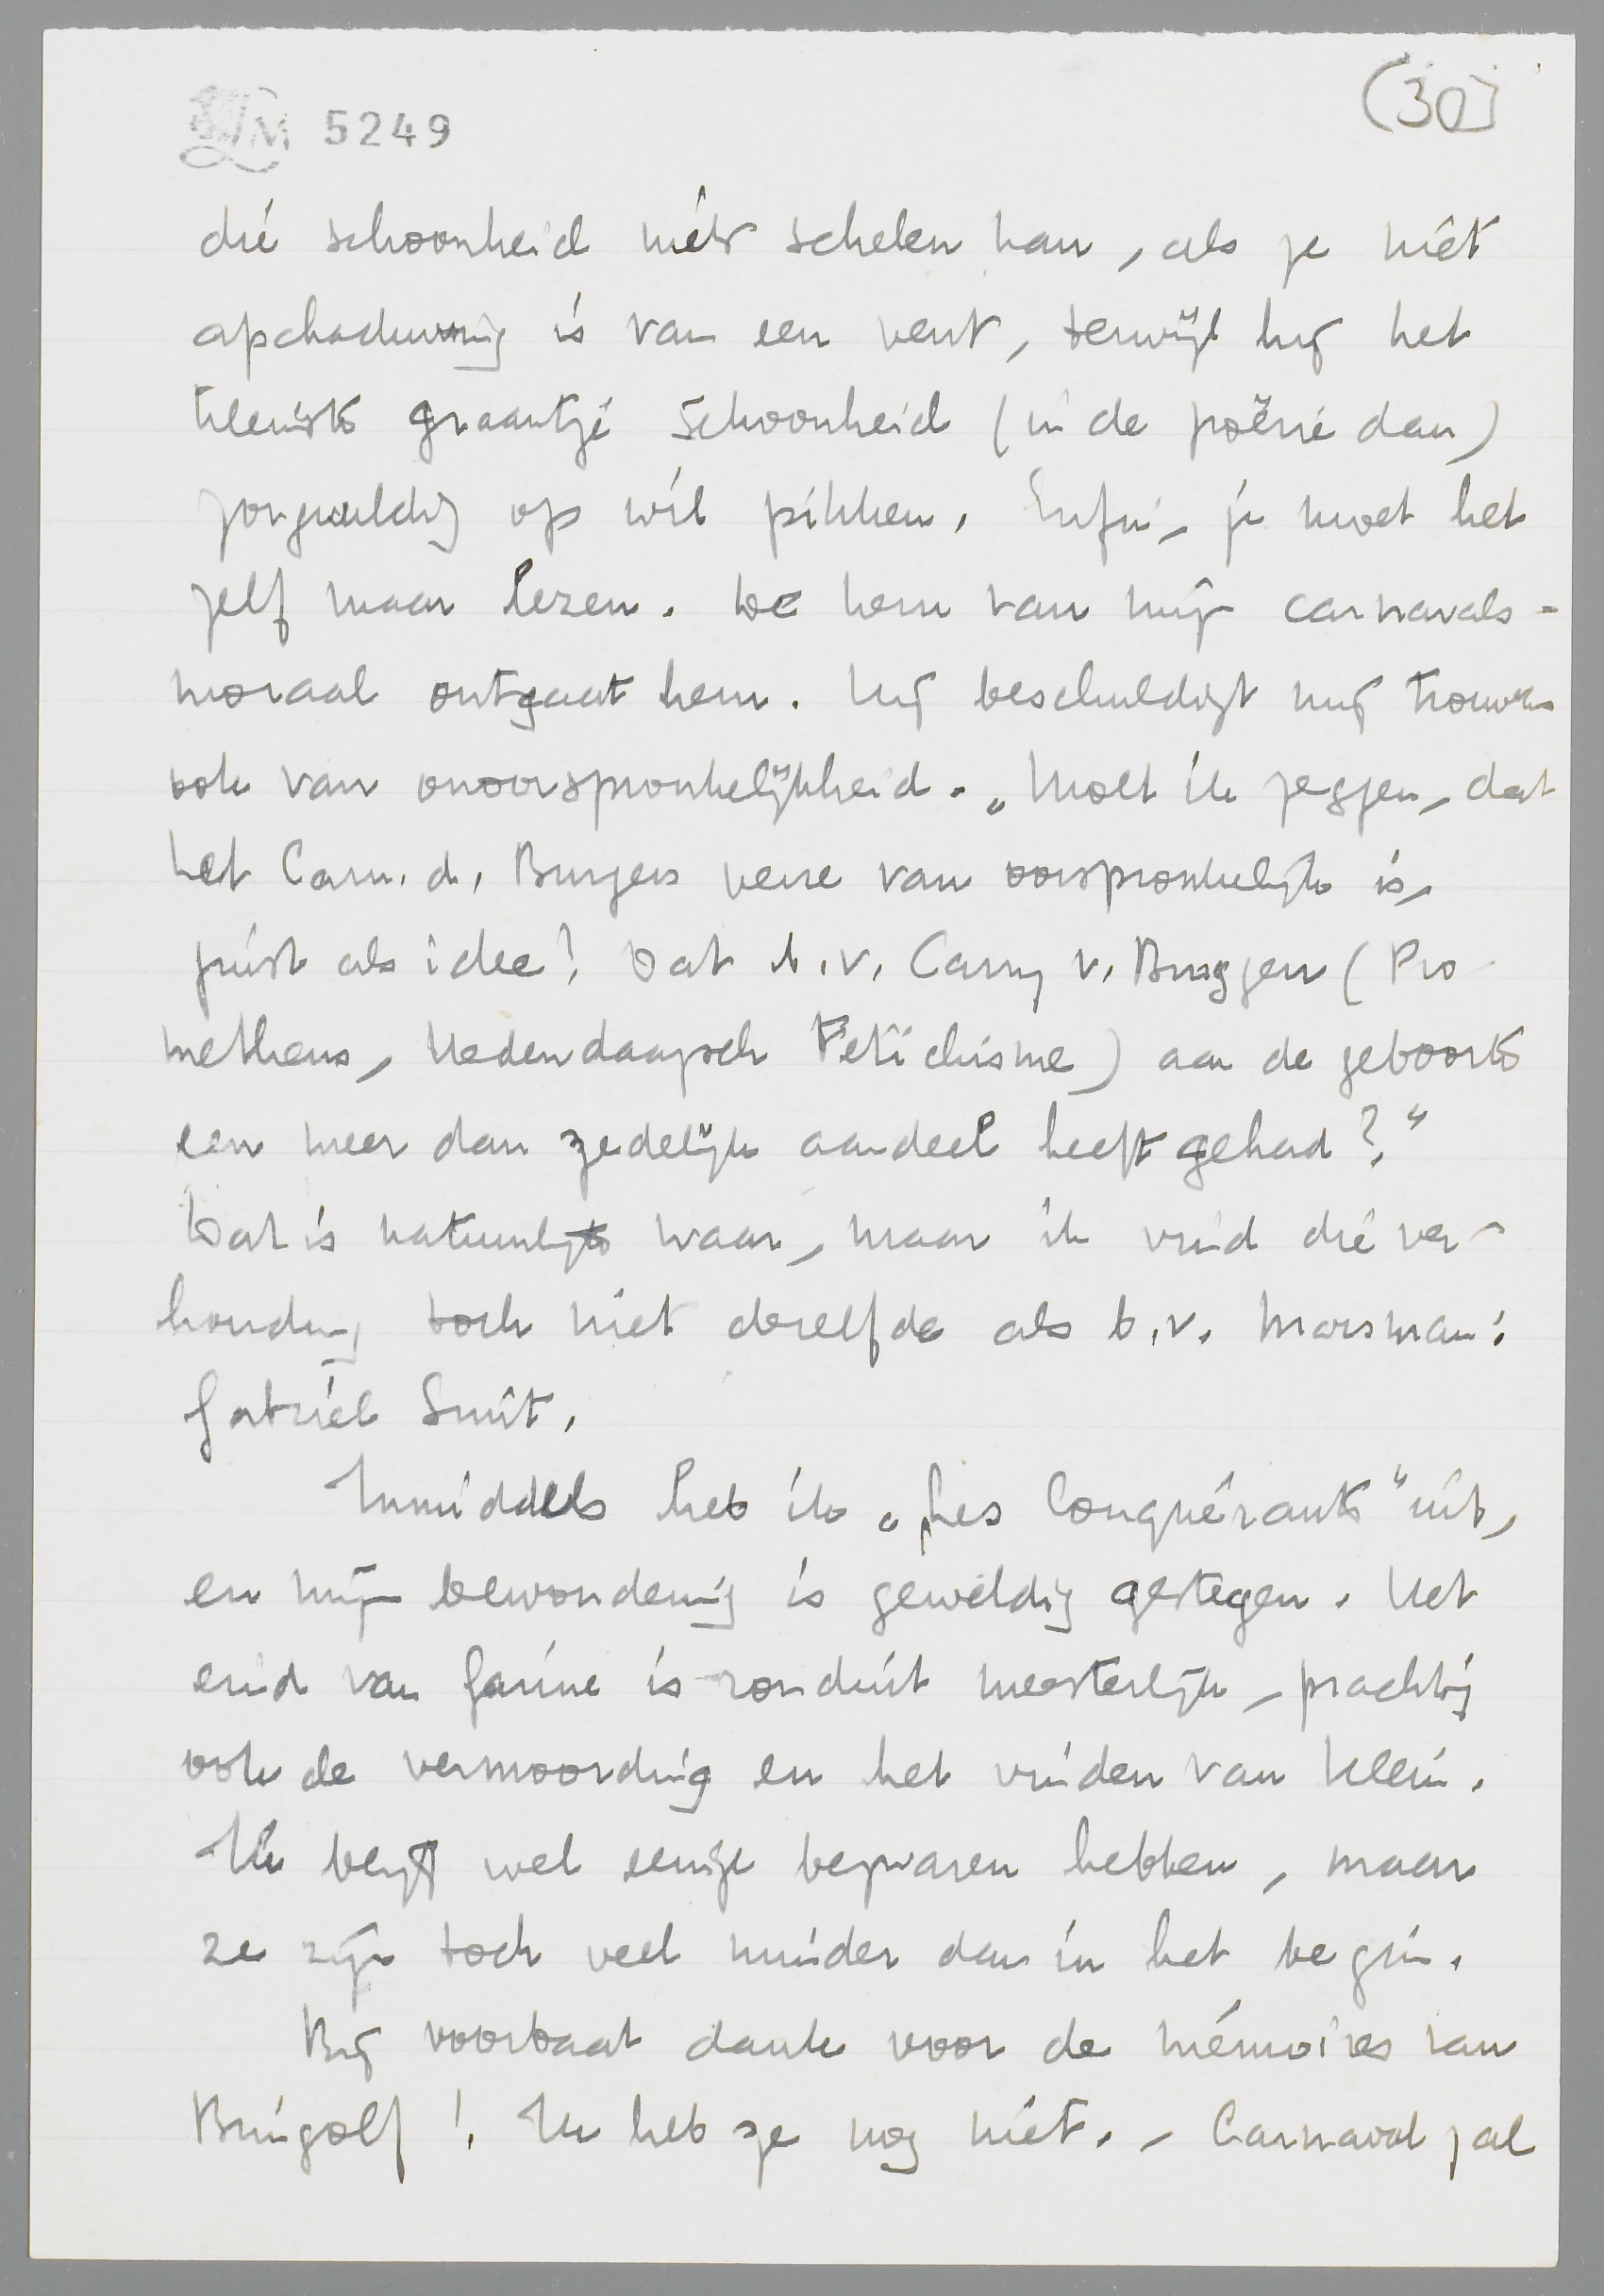 (30]
LM 5249
die schoonheid niets schelen kan, als ze niet
afschaduwing is van een vent, terwijl hij het
kleinste graantje schoonheid (in de poëzie dan)
zorgvuldig op wil pikken. Enfin, je moet het
zelf maar lezen. De kern van mijn carnavals-
moraal ontgaat hem. Hij beschuldigt mij trouwens
ook van onoorspronkelijkheid. „Moet ik zeggen, dat
het Carn. d. Burgers verre van oorspronkelijk is,
juist als idee? Dat b.v. Carry v. Bruggen (Pro-
metheus, Hedendaagsch Fetichisme) aan de geboorte
een meer dan zedelijk aandeel heeft gehad?"
Dat is natuurlijk waar, maar ik vind die ver-
houding toch niet dezelfde als b.v. Marsman:
Gabriël Smit.
Inmiddels heb ik „Les Conquérants" uit,
en mijn bewondering is geweldig gestegen. Het
eind van Garine is ronduit meesterlijk, prachtig
ook de vermoording en het vinden van Klein.
Ik blijf wel eenige bezwaren hebben, maar
ze zijn toch veel minder dan in het begin.
Bij voorbaat dank voor de mémoires van
Bringolf! Ik heb ze nog niet. - Carnaval zal